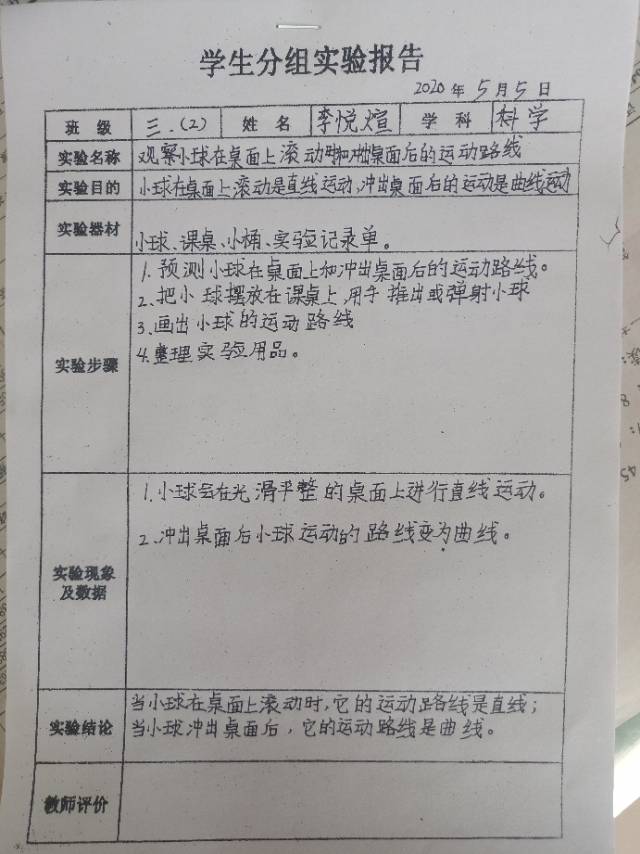 学生分组实验报告
2020年5月5日
班级 三.(2) 姓名 李悦煊 学科 科学
实验名称 观察小球在桌面上滚动时和冲出桌面后的运动路线
实验目的 小球在桌面上滚动是直线运动,冲出桌面后的运动是曲线运动
实验器材 小球、课桌、小桶、实验记录单。
1.预测小球在桌面上和冲出桌面后的运动路线。
2、把小球摆放在课桌上,用手推出或弹射小球
3.画出小球的运动路线
实验步骤
4.整理实验用品。
1.小球会在光滑平整的桌面上进行直线运动。
2.冲出桌面后小球运动的路线变为曲线。
实验现象
及数据
当小球在桌面上滚动时,它的运动路线是直线;
实验结论
当小球冲出桌面后,它的运动路线是曲线。
教师评价